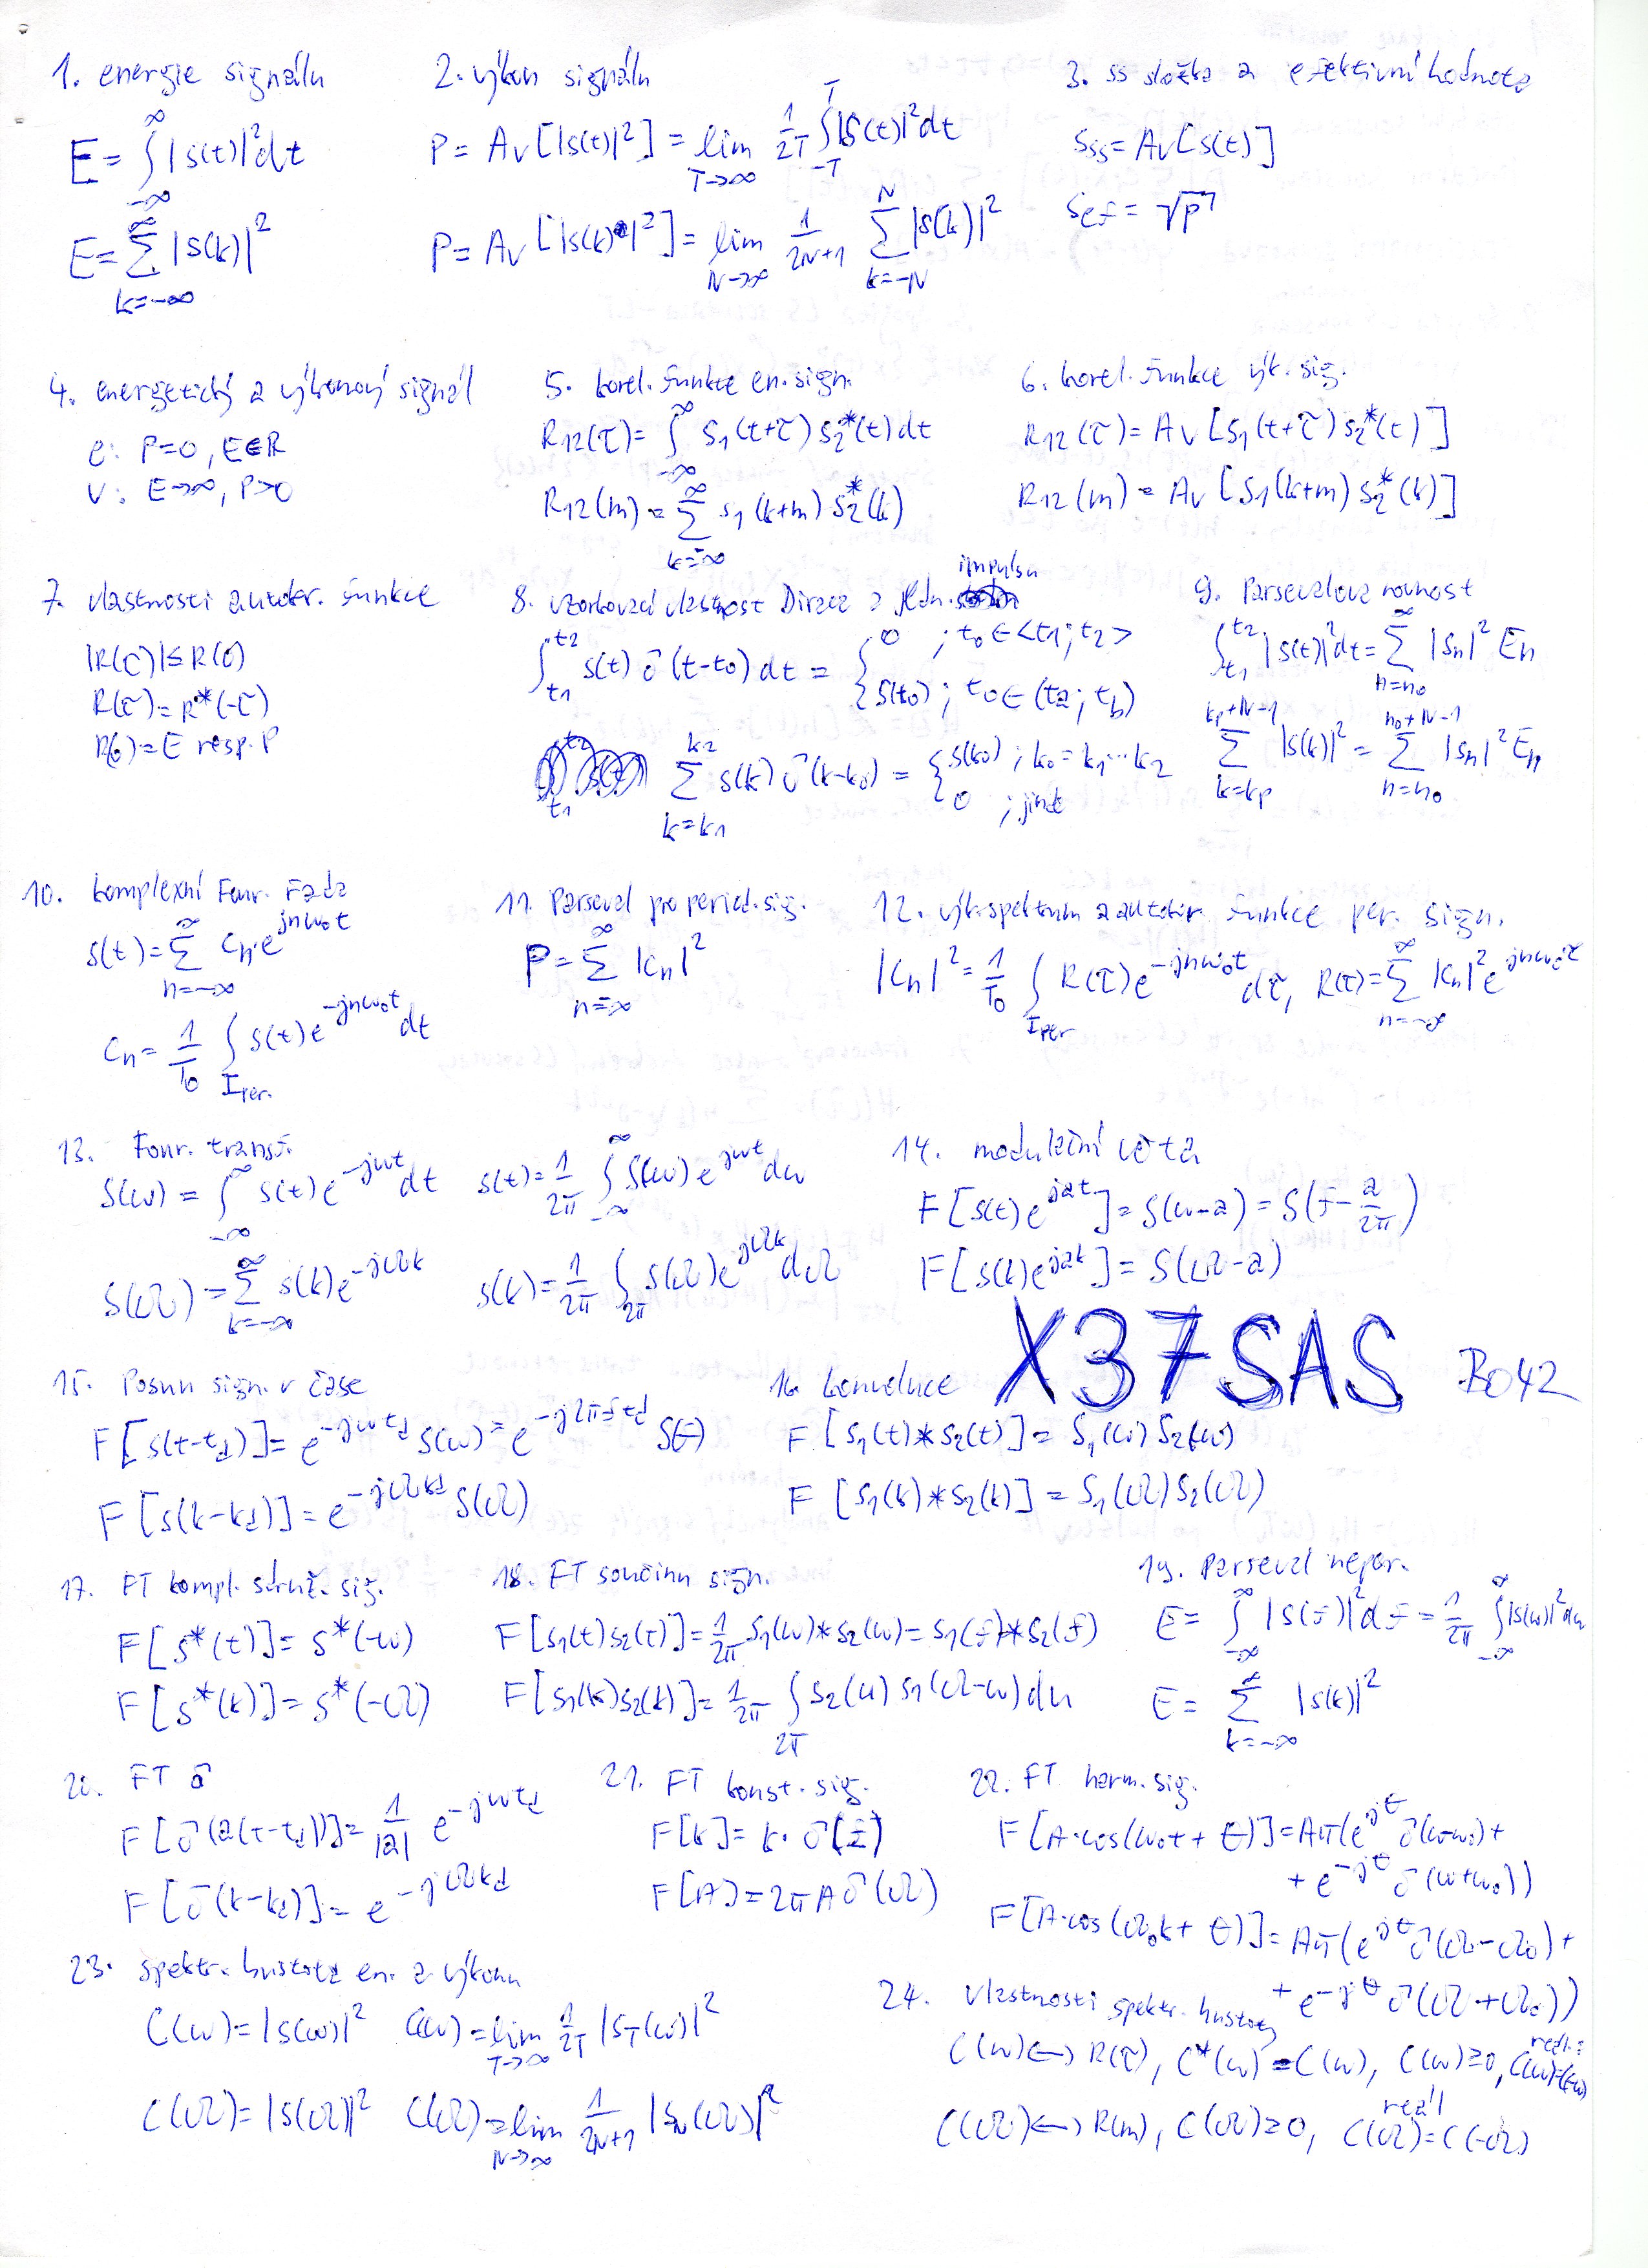 1. energie signálu
E = ∫_{-∞}^{∞} |s(t)|² dt
E = Σ_{k=-∞}^{∞} |s(k)|²
2. výkon signálu
P = Av[|s(t)|²] = lim_{T→∞} 1/2T ∫_{-T}^{T} |s(t)|² dt
P = Av[|s(k)|²] = lim_{N→∞} 1/(2N+1) Σ_{k=-N}^{N} |s(k)|²
3. ss složka a efektivní hodnota
Sss = Av[s(t)]
Sef = √P
4. energetický a výkonový signál
e: P=0, E∈R
v: E→∞, P>0
5. korel. funkce en. sign.
R12(τ) = ∫_{-∞}^{∞} s1(t+τ) s2*(t) dt
R12(m) = Σ_{k=-∞}^{∞} s1(k+m) s2*(k)
6. korel. funkce výk. sig.
R12(τ) = Av[s1(t+τ) s2*(t)]
R12(m) = Av[s1(k+m) s2*(k)]
7. vlastnosti autokr. funkce
|R(τ)| ≤ R(0)
R(τ) = R*(-τ)
R(0) = E resp. P
8. vzorkovací vlastnost Dirac a jedn. impulsu
∫_{t1}^{t2} s(t) δ(t-t0) dt = { 0 ; t0 ∈ <t1; t2>
s(t0) ; t0 ∈ (ta; tb)
Σ_{k=k1}^{k2} s(k) δ(k-k0) = { s(k0) ; k0 = k1…k2
0 ; jinde
9. Parsevalova rovnost
∫_{t1}^{t2} |s(t)|² dt = Σ_{n=n0}^{∞} |sn|² En
Σ_{k=kp}^{kp+N-1} |s(k)|² = Σ_{n=n0}^{n0+N-1} |sn|² En
10. komplexní Four. řada
s(t) = Σ_{n=-∞}^{∞} cn·e^{jnω0t}
cn = 1/T0 ∫_{Iper.} s(t) e^{-jnω0t} dt
11. Parseval pro period. sig.
P = Σ_{n=-∞}^{∞} |cn|²
12. výk. spektrum a autokr. funkce per. sign.
|cn|² = 1/T0 ∫_{Iper} R(τ) e^{-jnω0t} dτ, R(τ) = Σ_{n=-∞}^{∞} |cn|² e^{jnω0τ}
13. Four. transf.
S(ω) = ∫_{-∞}^{∞} s(t) e^{-jωt} dt s(t) = 1/2π ∫_{-∞}^{∞} S(ω) e^{jωt} dω
S(Ω) = Σ_{k=-∞}^{∞} s(k) e^{-jΩk} s(k) = 1/2π ∫_{2π} S(Ω) e^{jΩk} dΩ
14. modulační věta
F[s(t) e^{jat}] = S(ω-a) = S(f - a/2π)
F[s(k) e^{jak}] = S(Ω-a)
X37SAS B042
15. Posun sign. v čase
F[s(t-td)] = e^{-jωtd} S(ω) = e^{-j2πftd} S(f)
F[s(k-kd)] = e^{-jΩkd} S(Ω)
16. konvoluce
F[s1(t)*s2(t)] = S1(ω) S2(ω)
F[s1(k)*s2(k)] = S1(Ω) S2(Ω)
17. FT kompl. sdruž. sig.
F[s*(t)] = S*(-ω)
F[s*(k)] = S*(-Ω)
18. FT součinu sign.
F[s1(t) s2(t)] = 1/2π S1(ω)*S2(ω) = S1(f)*S2(f)
F[s1(k) s2(k)] = 1/2π ∫_{2π} S2(u) S1(Ω-u) du
19. Parseval neper.
E = ∫_{-∞}^{∞} |S(f)|² df = 1/2π ∫_{-∞}^{∞} |S(ω)|² dω
E = Σ_{k=-∞}^{∞} |s(k)|²
20. FT δ
F[δ(a(t-td))] = 1/|a| e^{-jωtd}
F[δ(k-kd)] = e^{-jΩkd}
21. FT konst. sig.
F[k] = k·δ(f)
F[A] = 2πAδ(Ω)
22. FT harm. sig.
F[A·cos(ω0t + θ)] = Aπ(e^{jθ} δ(ω-ω0) +
+ e^{-jθ} δ(ω+ω0))
F[A·cos(Ω0k + θ)] = Aπ(e^{jθ} δ(Ω-Ω0) +
+ e^{-jθ} δ(Ω+Ω0))
23. spektr. hustota en. a výkonu
C(ω) = |S(ω)|² C(ω) = lim_{T→∞} 1/2T |S_T(ω)|²
C(Ω) = |S(Ω)|² C(Ω) = lim_{N→∞} 1/(2N+1) |S_N(Ω)|²
24. Vlastnosti spektr. hustoty
C(ω) ↔ R(τ), C*(ω) = C(ω), C(ω) ≥ 0, reál.: C(ω)=C(-ω)
C(Ω) ↔ R(m), C(Ω) ≥ 0, reál C(Ω) = C(-Ω)